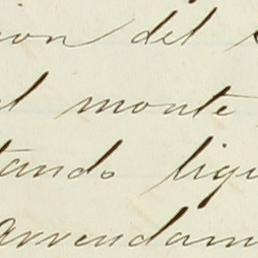 ion del
el monte
tando liqu
arrendam